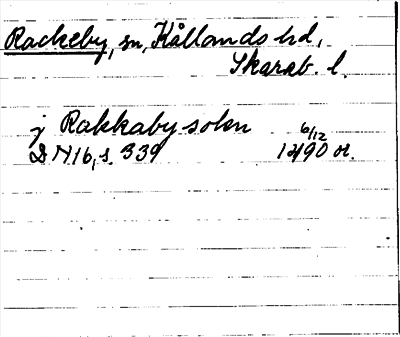 Rackeby, sn, Kållands hd,
Skarab. l.
j Rakkaby sokn
6/12
D N 16, s. 339 1490 or.